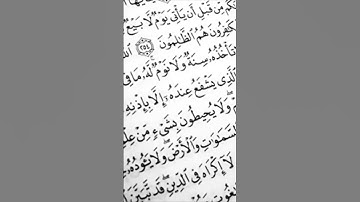 مِّن قَبْلِ أَن يَأْتِىَ يَوْمٌ لَّا بَيْعٌ
كَـٰفِرُونَ هُمُ ٱلظَّـٰلِمُونَ ٢٥٤
تَأْخُذُهُۥ سِنَةٌ وَلَا نَوْمٌ لَّهُۥ مَا فِى
ٱلَّذِى يَشْفَعُ عِندَهُۥٓ إِلَّا بِإِذْنِهِ
وَلَا يُحِيطُونَ بِشَىْءٍ مِّنْ
ٱلسَّمَـٰوَٰتِ وَٱلْأَرْضَ وَلَا يَـُٔودُهُ
لَآ إِكْرَاهَ فِى ٱلدِّينِ قَد تَّبَيَّنَ